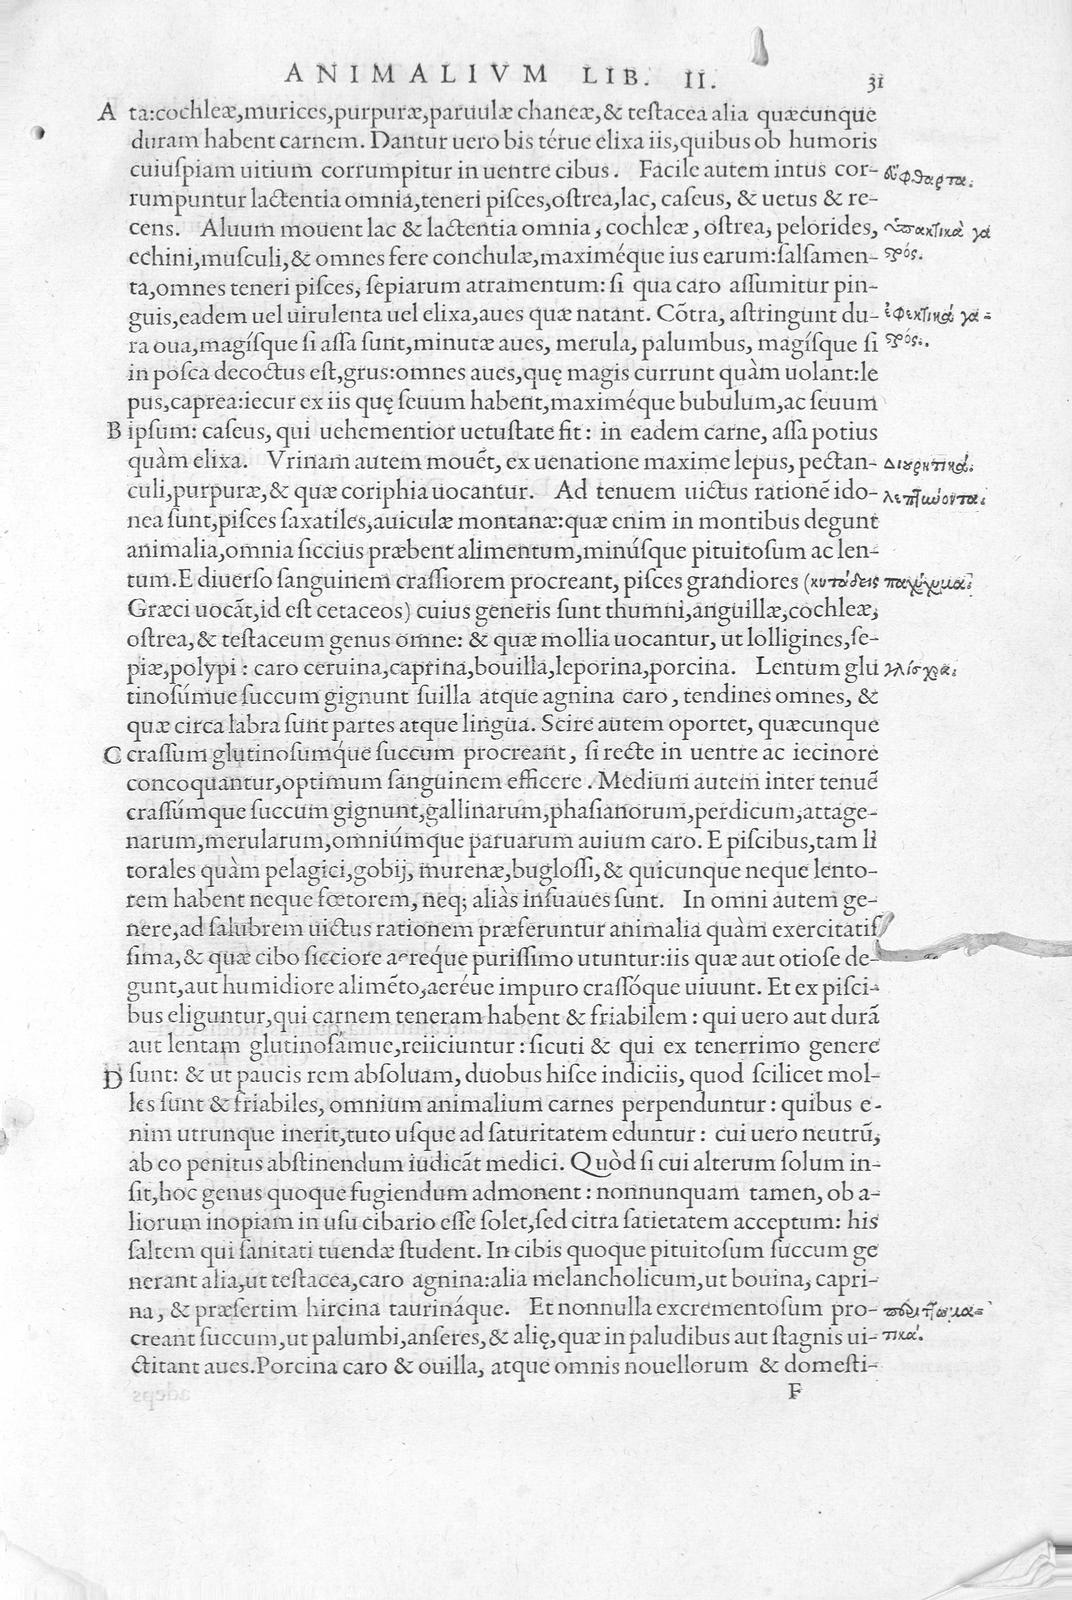 ANIMALIVM LIB. II. 31
A ta:cochleæ,murices,purpuræ,paruulæ chaneæ,& teſtacea alia quæcunque
duram habent carnem. Dantur uero bis térue elixa iis,quibus ob humoris
cuiuſpiam uitium corrumpitur in uentre cibus. Facile autem intus cor-
rumpuntur lactentia omnia,teneri piſces,oſtrea,lac, caſeus, & uetus & re- δύφθαρτα.
cens. Aluum mouent lac & lactentia omnia, cochleæ, oſtrea, pelorides, ὑπακτικὰ γα
echini,muſculi,& omnes fere conchulæ,maximéque ius earum:ſalſamen- στρός.
ta,omnes teneri piſces, ſepiarum atramentum: ſi qua caro aſſumitur pin-
guis,eadem uel uirulenta uel elixa,aues quæ natant. Cõtra, aſtringunt du- ἐφεκτικά γα-
ra oua,magíſque ſi aſſa ſunt,minutæ aues, merula, palumbus, magíſque ſi στρός.
in poſca decoctus eſt,grus:omnes aues,quę magis currunt quàm uolant:le
pus,caprea:iecur ex iis quę ſeuum habent,maximéque bubulum,ac ſeuum
B ipſum: caſeus, qui uehementior uetuſtate fit: in eadem carne, aſſa potius
quàm elixa. Vrinam autem mouẽt, ex uenatione maxime lepus, pectan- Διουρητικά.
culi,purpuræ,& quæ coriphia uocantur. Ad tenuem uictus rationẽ ido- λεπτύνοντα.
nea ſunt,piſces ſaxatiles,auiculæ montanæ:quæ enim in montibus degunt
animalia,omnia ſiccius præbent alimentum,minúſque pituitoſum ac len-
tum.E diuerſo ſanguinem craſſiorem procreant, piſces grandiores (κητώδεις παχύχυμα.
Græci uocãt,id eſt cetaceos) cuius generis ſunt thumni,anguillæ,cochleæ,
oſtrea,& teſtaceum genus omne: & quæ mollia uocantur, ut lolligines,ſe-
piæ,polypi: caro ceruina,caprina,bouilla,leporina,porcina. Lentum glu γλίσχρα.
tinoſúmue ſuccum gignunt ſuilla atque agnina caro, tendines omnes, &
quæ circa labra ſunt partes atque lingua. Scire autem oportet, quæcunque
C craſſum glutinoſumq́ue ſuccum procreant, ſi recte in uentre ac iecinore
concoquantur,optimum ſanguinem efficere. Medium autem inter tenuẽ
craſſúmque ſuccum gignunt,gallinarum,phaſianorum,perdicum,attage-
narum,merularum,omniúmque paruarum auium caro. E piſcibus,tam li
torales quàm pelagici,gobij, murenæ,bugloſſi,& quicunque neque lento-
rem habent neque fœtorem, neq; aliàs inſuaues ſunt. In omni autem ge-
nere,ad ſalubrem uictus rationem præferuntur animalia quàm exercitatiſ
ſima,& quæ cibo ſicciore aeréque puriſſimo utuntur:iis quæ aut otioſe de-
gunt,aut humidiore alimẽto,aeréue impuro craſſóque uiuunt. Et ex piſci-
bus eliguntur,qui carnem teneram habent & friabilem: qui uero aut durã
aut lentam glutinoſámue,reiiciuntur: ſicuti & qui ex tenerrimo genere
D ſunt: & ut paucis rem abſoluam, duobus hiſce indiciis, quod ſcilicet mol-
les ſunt & friabiles, omnium animalium carnes perpenduntur: quibus e-
nim utrunque inerit,tuto uſque ad ſaturitatem eduntur: cui uero neutrũ,
ab eo penitus abſtinendum iudicãt medici. Quòd ſi cui alterum ſolum in-
ſit,hoc genus quoque fugiendum admonent: nonnunquam tamen, ob a-
liorum inopiam in uſu cibario eſſe ſolet,ſed citra ſatietatem acceptum: his
ſaltem qui ſanitati tuendæ ſtudent. In cibis quoque pituitoſum ſuccum ge
nerant alia,ut teſtacea,caro agnina:alia melancholicum,ut bouina, capri-
na, & præſertim hircina taurináque. Et nonnulla excrementoſum pro- περιττωμα-
creant ſuccum,ut palumbi,anſeres,& alię,quæ in paludibus aut ſtagnis ui- τικά.
ctitant aues.Porcina caro & ouilla, atque omnis nouellorum & domeſti-
F